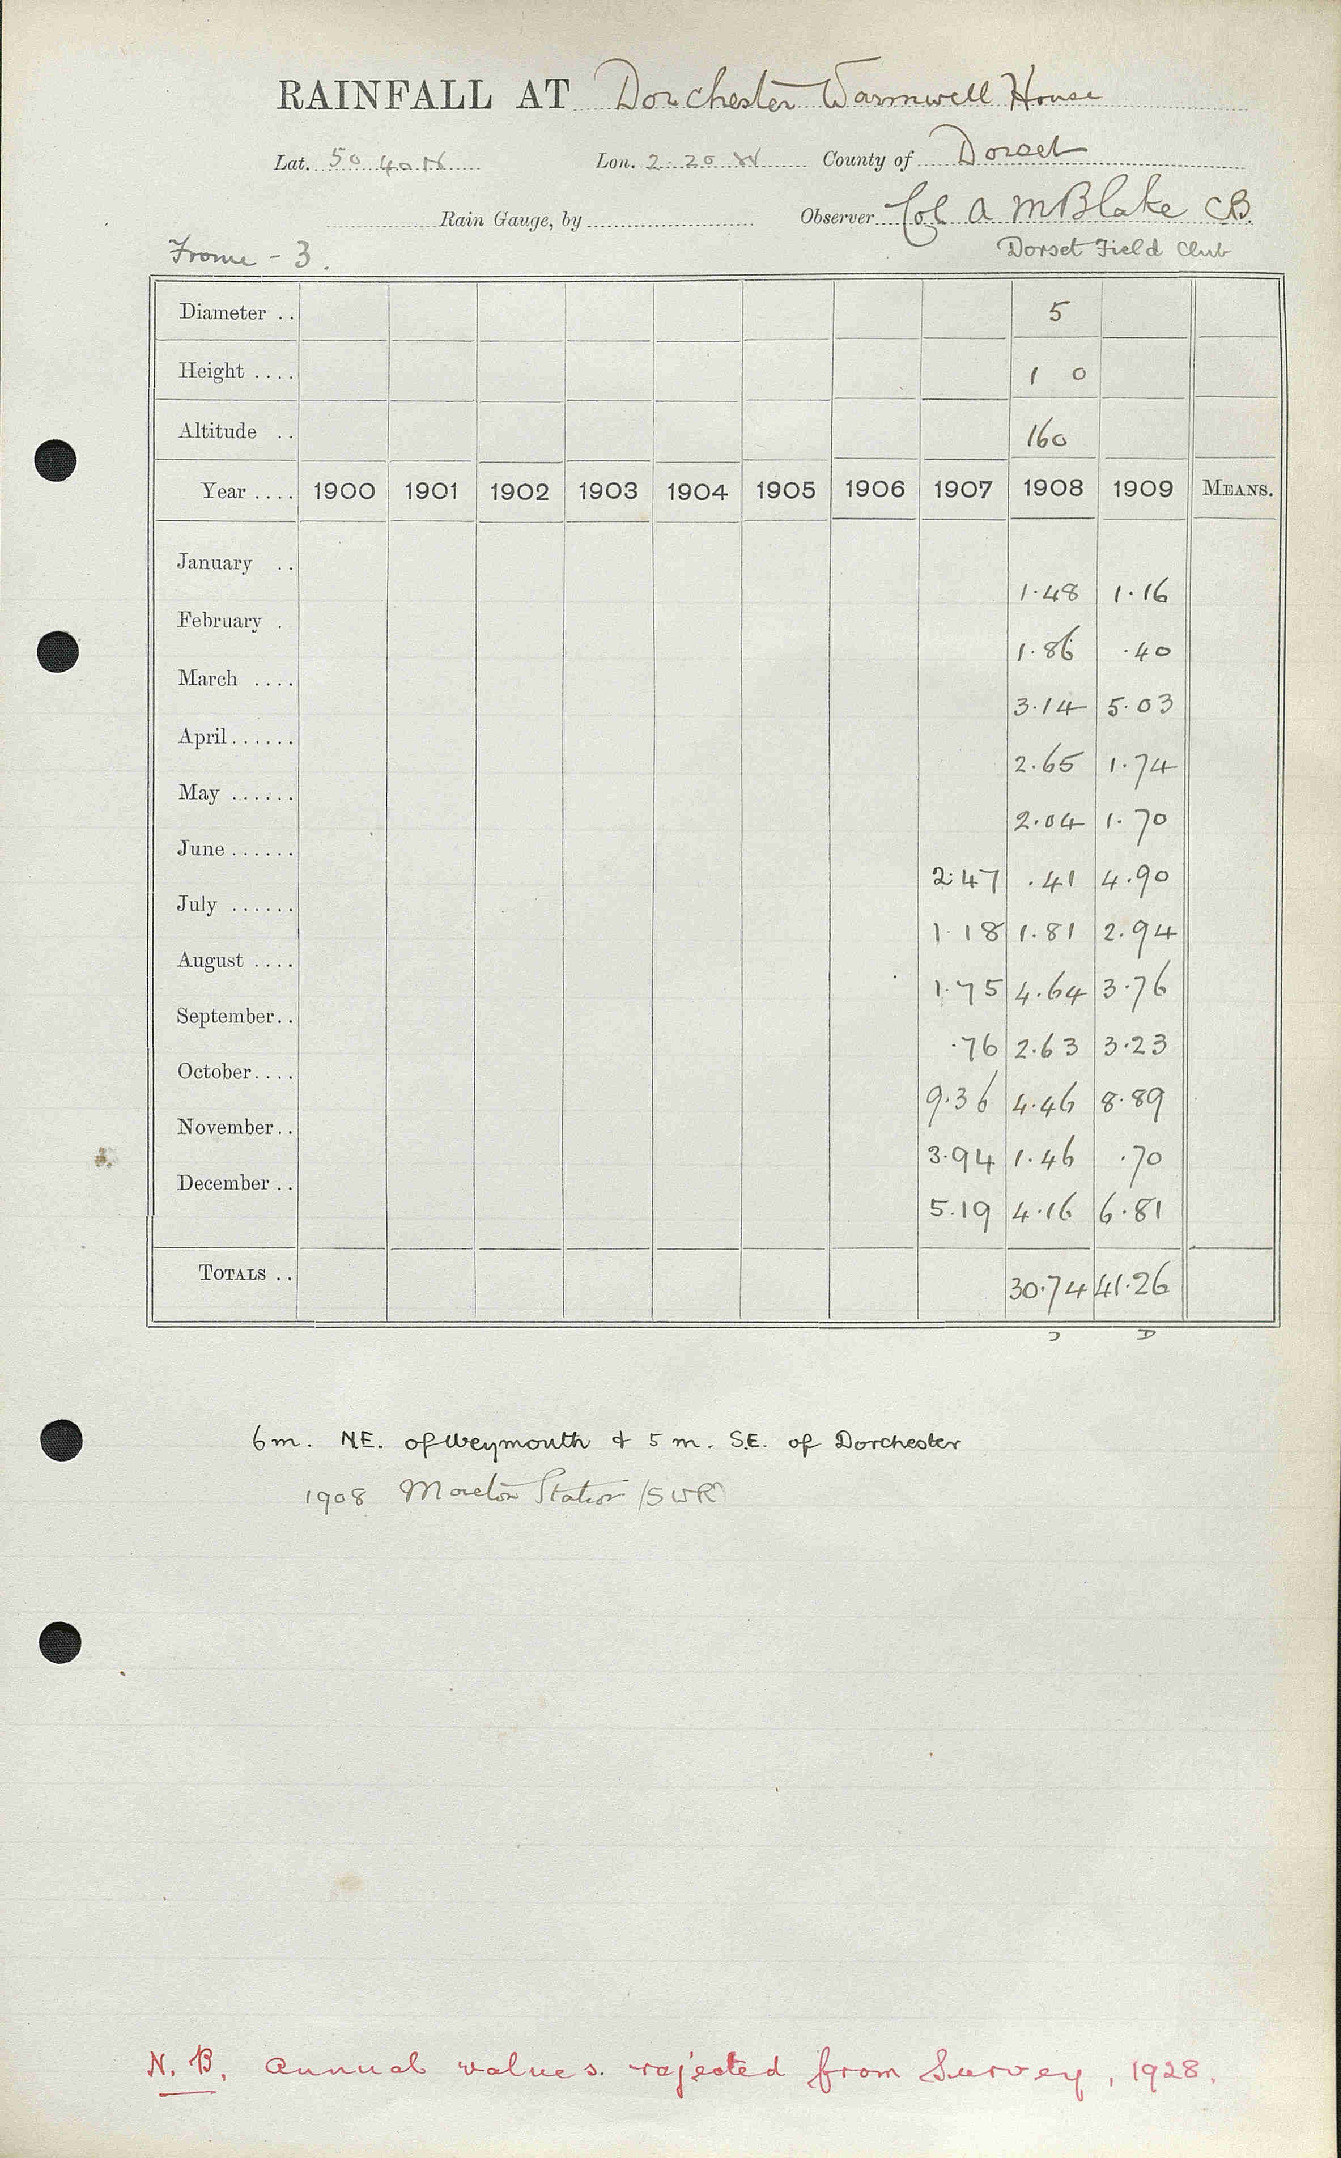 RAINFALL AT Dorchester Warmwell House
Lat. 50 40 N Lon. 2 20 W County of Dorset
Rain Gauge, by Observer Col A M Blake CB.
Frome - 3. Dorset Field Club
Diameter .. 5
Height .... 1 0
Altitude .. 160
Year .... 1900 1901 1902 1903 1904 1905 1906 1907 1908 1909 MEANS.
January ..
1.48 1.16
February .
1.86 .40
March ....
3.14 5.03
April......
2.65 1.74
May ......
2.04 1.70
June ......
2.47 .41 4.90
July ......
1.18 1.81 2.94
August ....
1.75 4.64 3.76
September..
.76 2.63 3.23
October....
9.36 4.46 8.89
November..
3.94 1.46 .70
December ..
5.19 4.16 6.81
TOTALS ..
30.74 41.26
D
6 m. N.E. of Weymouth & 5 m. S.E. of Dorchester
1908 Moreton Station (SWR)
N. B. Annual values rejected from Survey, 1928.